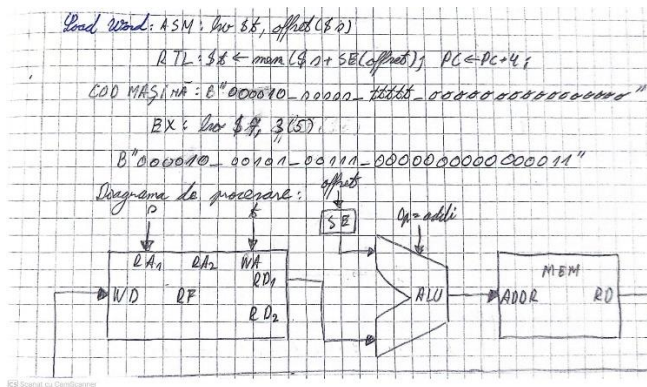 Load Word: ASM: lw $t, offset($s)
RTL: $t ← mem($s + SE(offset)); PC ← PC+4;
COD MAȘINĂ: B"000010_sssss_ttttt_oooooooooooooooo"
EX: lw $7, 3(5)
B"000010_00101_00111_0000000000000011"
Diagrama de procesare:
offset
s
t
SE
op=addi
RA1 RA2 WA
RD1
WD RF
RD2
ALU
MEM
ADDR RD
Scanat cu CamScanner